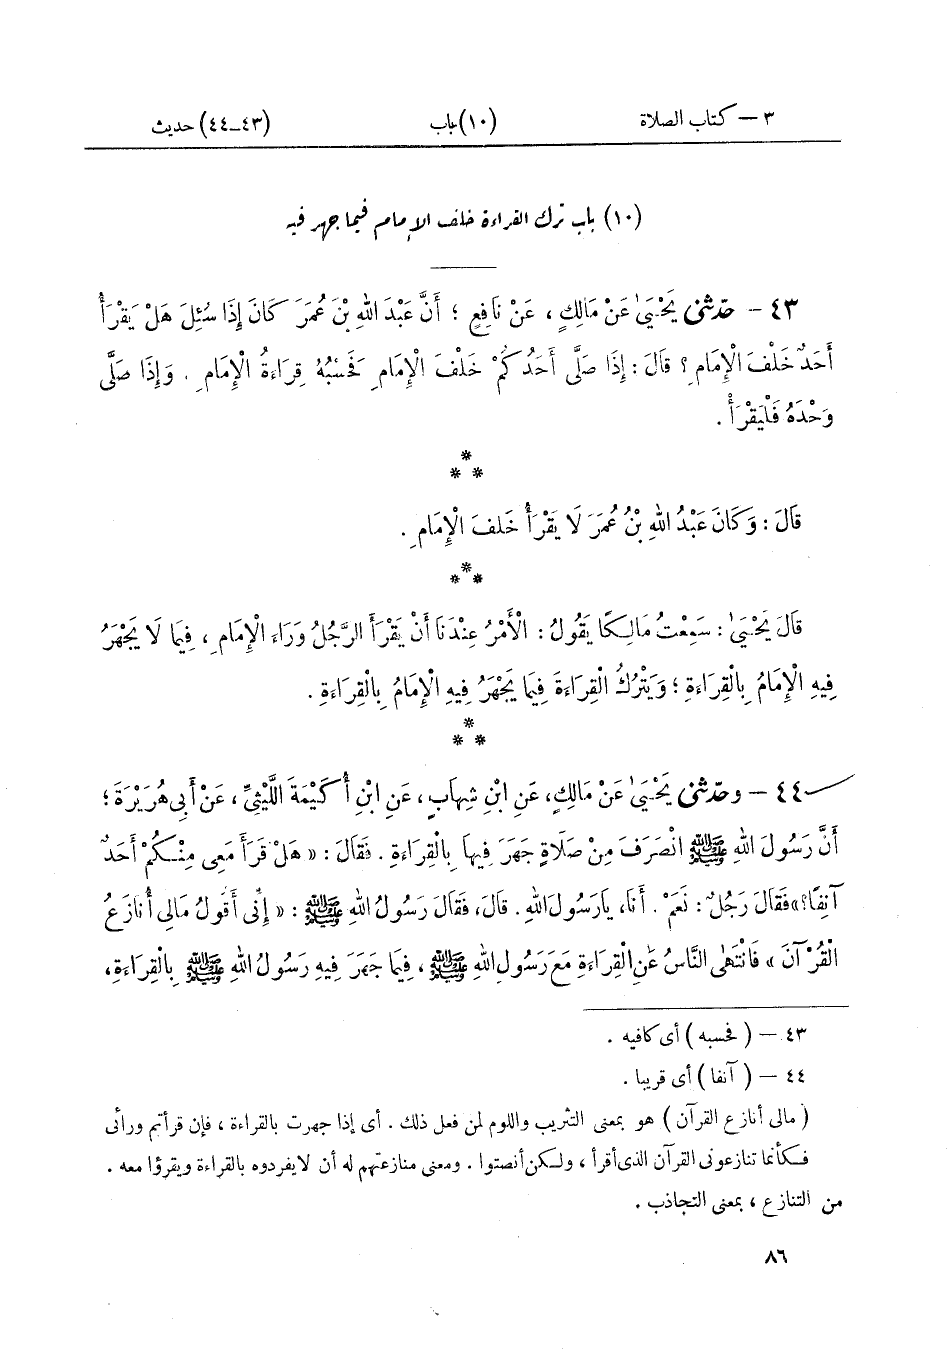 ٣ — كتاب الصلاة (١٠) باب (٤٣–٤٤) حديث
(١٠) باب ترك القراءة خلف الإمام فيما جهر فيه
٤٣ – حدّثنى يَحْيَىٰ عَنْ مَالِكٍ، عَنْ نَافِعٍ ؛ أَنَّ عَبْدَ اللهِ بْنَ عُمَرَ كَانَ إِذَا سُئِلَ هَلْ يَقْرَأُ
أَحَدٌ خَلْفَ الْإِمَامِ ؟ قَالَ : إِذَا صَلَّى أَحَدُكُمْ خَلْفَ الْإِمَامِ فَحَسْبُهُ قِرَاءَةُ الْإِمَامِ . وَإِذَا صَلَّى
وَحْدَهُ فَلْيَقْرَأْ .
*
* *
قَالَ : وَكَانَ عَبْدُ اللهِ بْنُ عُمَرَ لَا يَقْرَأُ خَلفَ الْإِمَامِ .
*
* *
قَالَ يَحْيَىٰ : سَمِعْتُ مَالِكًا يَقُولُ : الْأَمْرُ عِنْدَنَا أَنْ يَقْرَأَ الرَّجُلُ وَرَاءَ الْإِمَامِ ، فِيمَا لَا يَجْهَرُ
فِيهِ الْإِمَامُ بِالْقِرَاءَةِ ؛ وَيَتْرُكُ الْقِرَاءَةَ فِيمَا يَجْهَرُ فِيهِ الْإِمَامُ بِالْقِرَاءَةِ .
*
* *
٤٤ – وحدّثنى يَحْيَىٰ عَنْ مَالِكٍ، عَنِ ابْنِ شِهَابٍ، عَنِ ابْنِ أُكَيْمَةَ اللَّيْثِيِّ، عَنْ أَبِى هُرَيْرَةَ ؛
أَنَّ رَسُولَ اللهِ ﷺ انْصَرَفَ مِنْ صَلَاةٍ جَهَرَ فِيهَا بِالْقِرَاءَةِ . فَقَالَ : « هَلْ قَرَأَ مَعِى مِنْكُمْ أَحَدٌ
آنِفًا؟» فَقَالَ رَجُلٌ : نَعَمْ . أَنَا، يَارَسُولَ اللهِ . قَالَ، فَقَالَ رَسُولُ اللهِ ﷺ : « إِنِّى أَقُولُ مَالِى أُنَازَعُ
الْقُرْآنَ » فَانْتَهَى النَّاسُ عَنِ الْقِرَاءَةِ مَعَ رَسُولِ اللهِ ﷺ ، فِيمَا جَهَرَ فِيهِ رَسُولُ اللهِ ﷺ بِالْقِرَاءَةِ،
٤٣ – ( فحسبه ) أى كافيه .
٤٤ – ( آنفا ) أى قريبا .
( مالى أنازع القرآن ) هو بمعنى التثريب واللوم لمن فعل ذلك . أى إذا جهرت بالقراءة ، فإن قرأتم ورائى
فكأنما تنازعونى القرآن الذى أقرأ ، ولكن أنصتوا . ومعنى منازعتهم له أن لا يفردوه بالقراءة ويقرؤا معه .
من التنازع ، بمعنى التجاذب .
٨٦